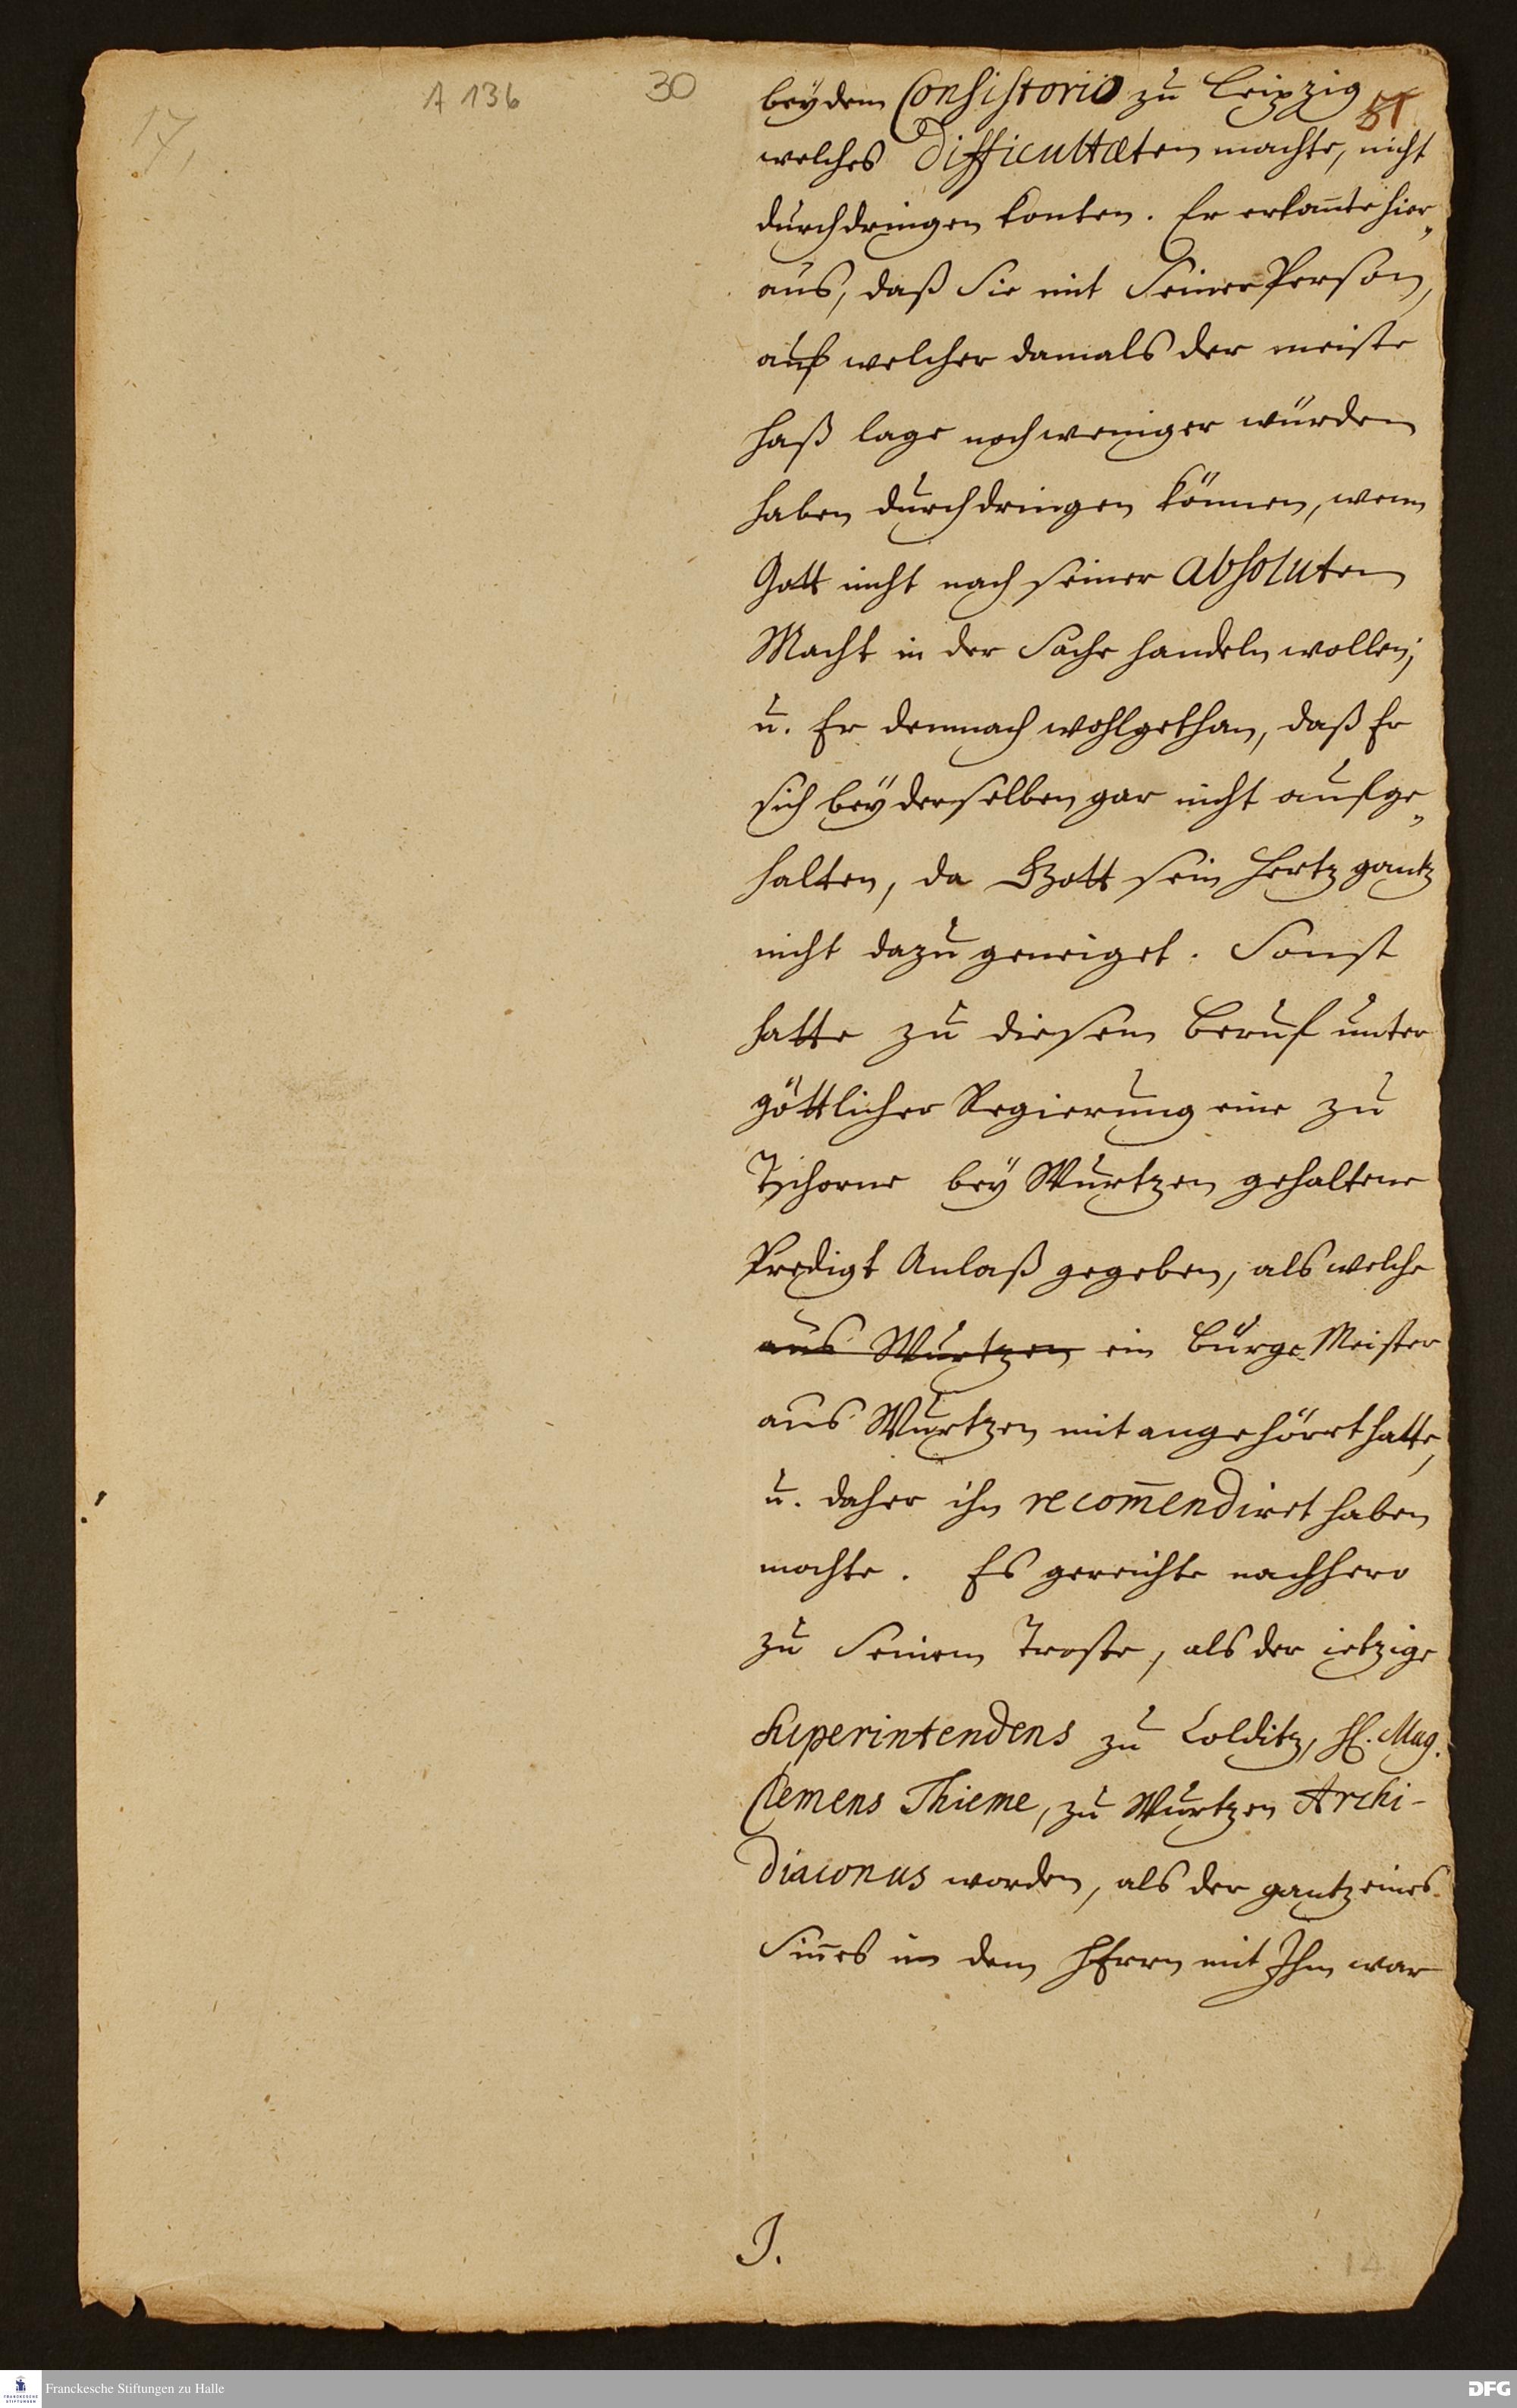 17,
A 136
30
51
bey dem Consistorio zu Leipzig
welches Difficultæten machte, nicht
durchdringen konten. Er erkan̄te hier„
aus, daß Sie mit Seiner Person,
auf welcher damals der meiste
haß lage noch weniger würden
haben durchdringen können, wenn
Gott nicht nach seiner absoluten
Macht in der Sache handeln wollen;
u. Er demnach wohlgethan, daß Er
sich bey derselben gar nicht aufge„
halten, da Gott sein Hertz gantz
nicht dazu geneiget. Sonst
hatte zu diesem Beruf unter
göttlicher Regierung eine zu
Tschorne bey Wurtzen gehaltene
Predigt Anlaß gegeben, als welche
aus Wurtzen ein Bürge Meister
aus Wurtzen mit angehöret hatte,
u. daher ihn recom̄endiret haben
mochte. Es gereichte nachhero
zu Seinem Troste, als der ietzige
Superintendens zu Colditz, H. Mag.
Clemens Thieme, zu Wurtzen Archi-
diaconus worden, als der gantz eines
Sin̄es in dem HErrn mit Ihm war
J.
14
Franckesche Stiftungen zu Halle
DFG